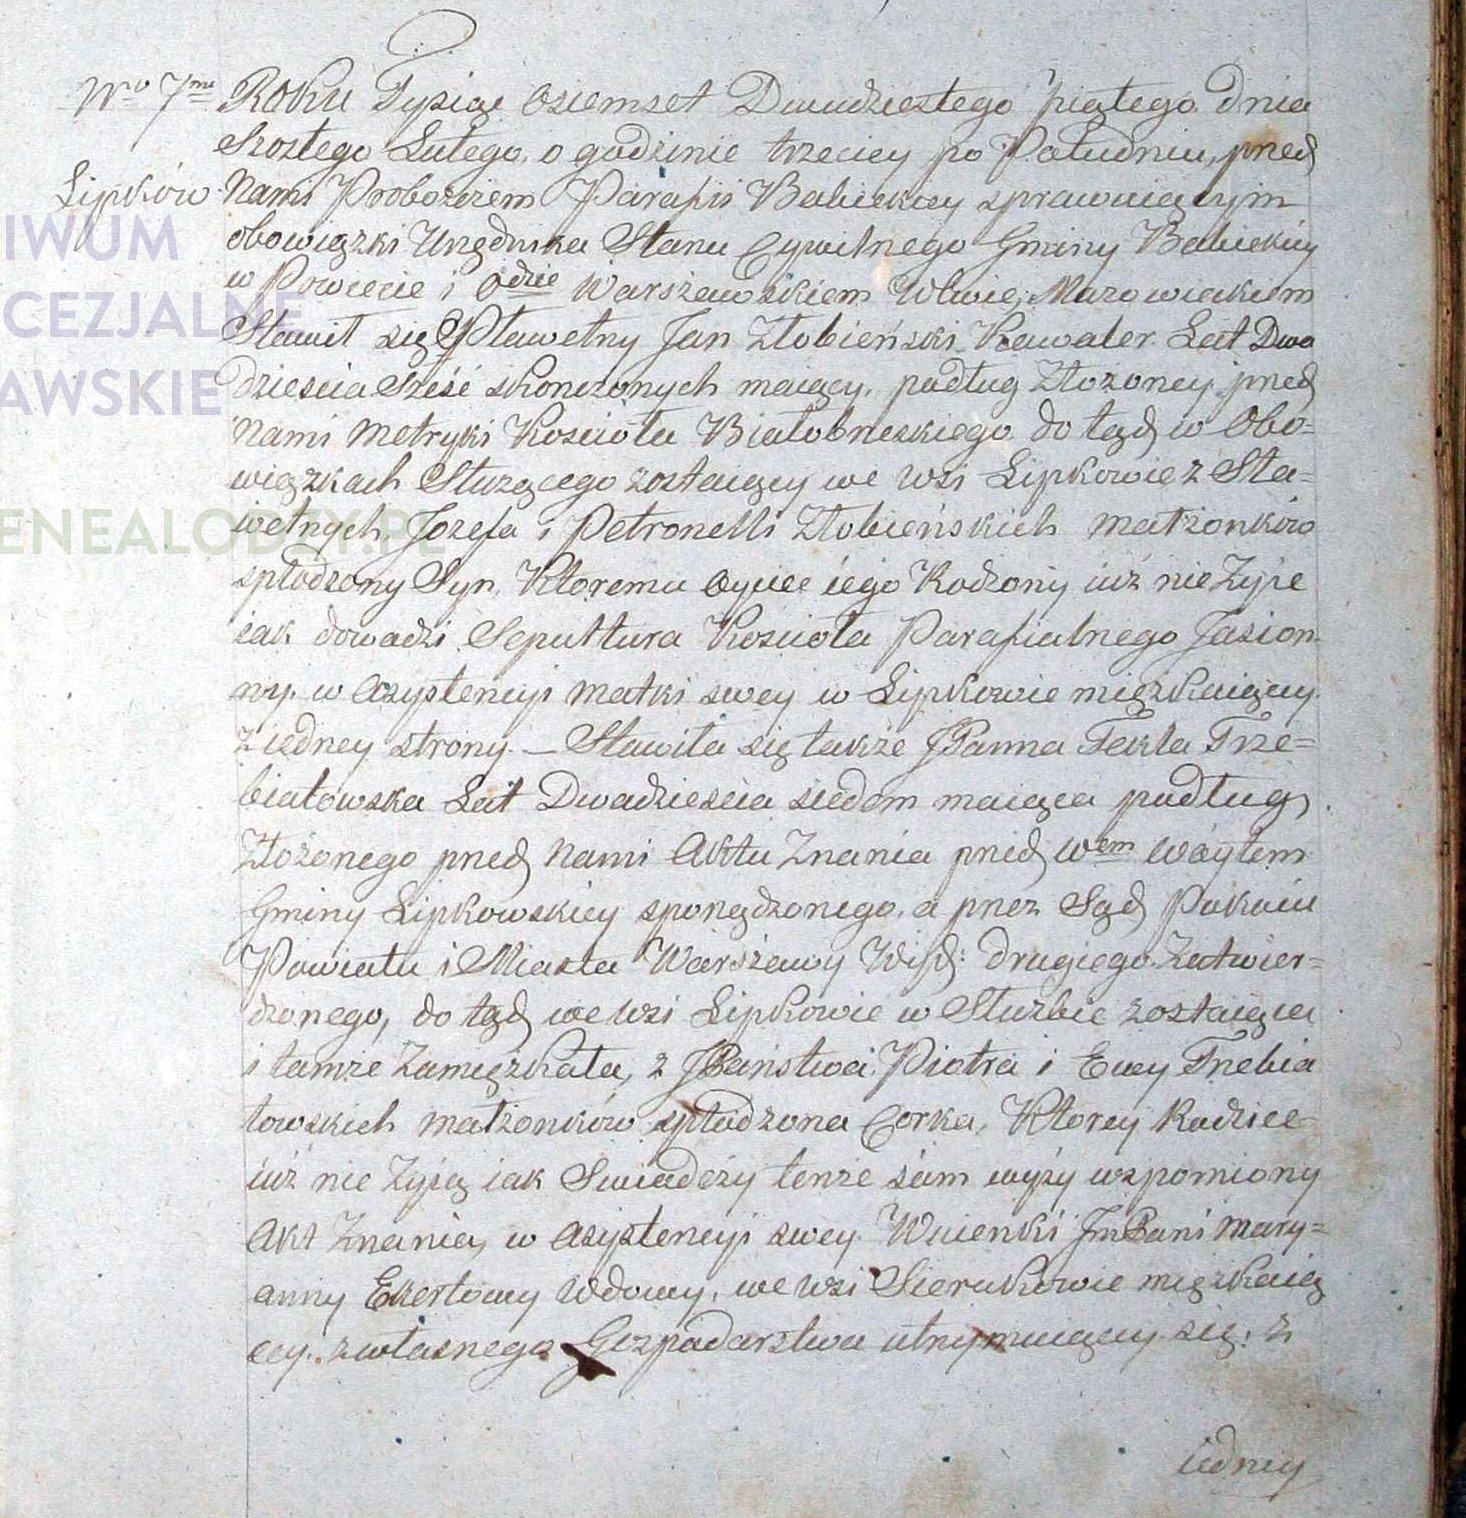 Nro 7me Roku Tysiąc Osiemset Dwudziestego piątego dnia
Szostego Lutego o godzinie trzeciey po Południu, przed
Lipków Nami Proboszczem Parafii Babickiey sprawuiącym
obowiązki Urzędnika Stanu Cywilnego Gminy Babickiey
w Powiecie i Odzie Warszawskiem Wdwie Mazowieckiem
Stawił się Sławetny Jan Złobieński Kawaler Lat Dwa
dziescia Sześć skonczonych maiący, podług Złozoney przed
Nami Metryki Kościoła Białobrzeskiego do tąd w Obo=
wiązkach Służącego zostaiący we wsi Lipkowie z Sła=
wetnych Jozefa i Petronelli Złobieńskich małżonków
spłodzony Syn, Ktoremu Oyciec iego Rodzony iuż nie Żyie
iak dowodzi Sepultura Kościoła Parafialnego Jasion
ny w Asystencyi matki swey w Lipkowie mięszkaiącey
z iedney strony — Stawiła się także JPanna Tekla Trze=
biatowska Lat Dwadzieścia siedem maiąca podług
Złożonego przed Nami Aktu Znania przed Wem Wóytem
Gminy Lipkowskiey sporządzonego, a przez Sąd Pokoiu
Powiatu i Miasta Warszawy Wyd: drugiego Zatwier=
dzonego, do tąd we wsi Lipkowie w Służbie zostaiąca
i tamże Zamięszkała, z JPaństwa Piotra i Ewy Trzebia
towskich małżonków spłodzona Corka, Ktorey Rodzice
iuż nie Żyią iak Swiadczy tenże sam wyży wspomiony
Akt Znania, w Asystencyi swey Wuienki JmPani Mary=
anny Ekertowy Wdowy, we wsi Sierakowie mięszkaią
cey z własnego Gospodarstwa utrzymuiącey się. z
iedney